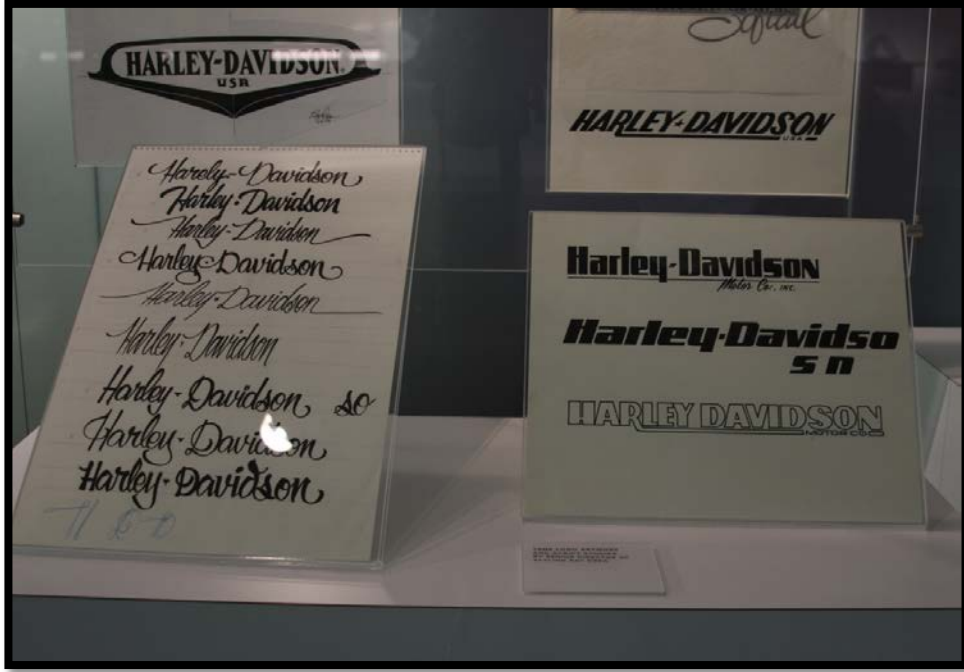 HARLEY-DAVIDSON
USA
Softail
HARLEY-DAVIDSON
USA
Harely-Davidson
Harley-Davidson
Harley-Davidson
Harley-Davidson
Harley-Davidson
Harley-Davidson
Harley-Davidson so
Harley-Davidson
Harley-Davidson
H & D
Harley-Davidson
Motor Co., INC.
Harley-Davidso
s n
HARLEY DAVIDSON
MOTOR CO.